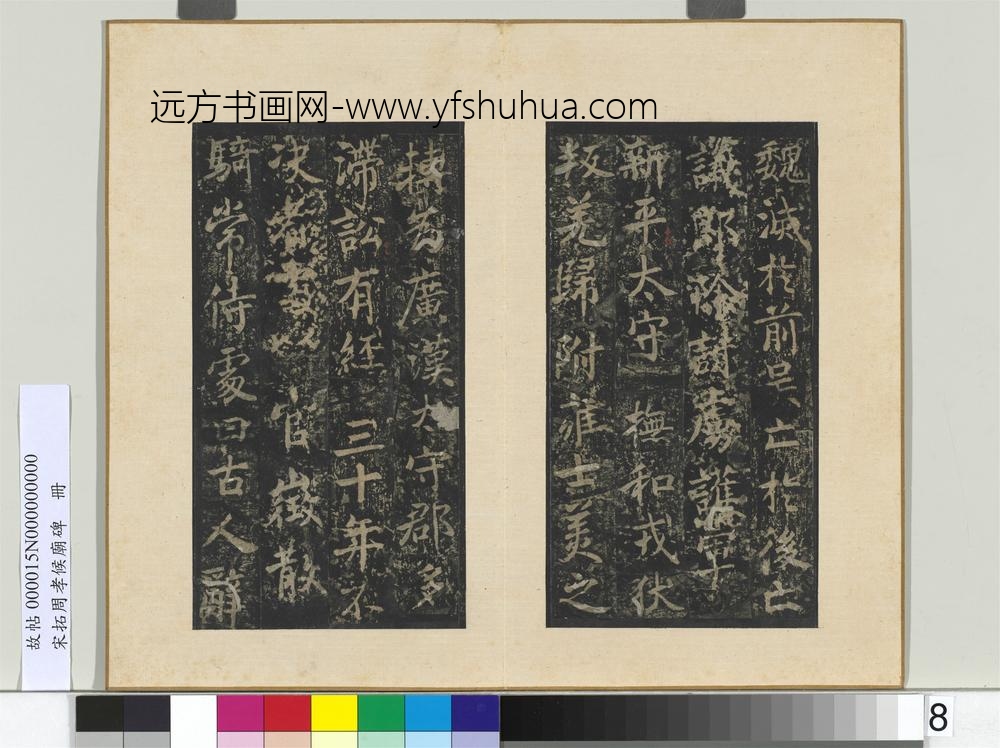 远方书画网-www.yfshuhua.com
魏滅於前吳亡於後亡
議郎
新平太守撫和戎狄
叛羌歸附雍土美之
轉為廣漢太守郡多
滯訟有經三十年不
決 官徵散
騎常侍處曰古人辭
故帖 000015N000000000
宋拓周孝候廟碑 冊
8